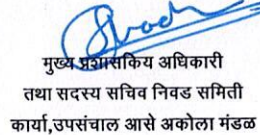 मुख्य प्रशासकिय अधिकारी
तथा सदस्य सचिव निवड समिती
कार्या,उपसंचाल आसे अकोला मंडळ